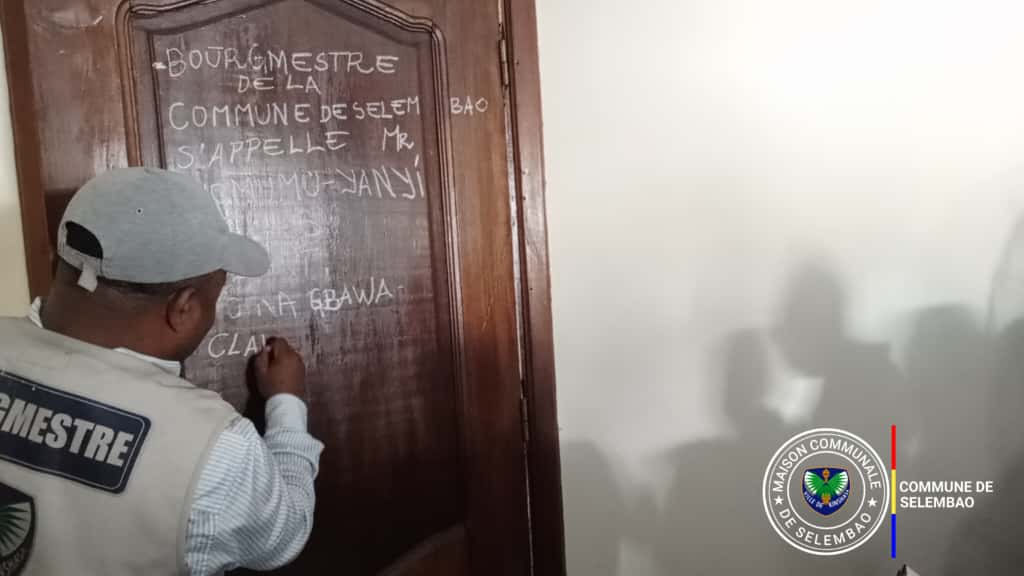 -BOURGMESTRE
DE LA
COMMUNE DE SELEM BAO
S'APPELLE Mr,
-YANYI
GBAWA-
CLA
GMESTRE
MAISON COMMUNALE
VILLE DE KINSHASA
DE SELEMBAO
COMMUNE DE
SELEMBAO